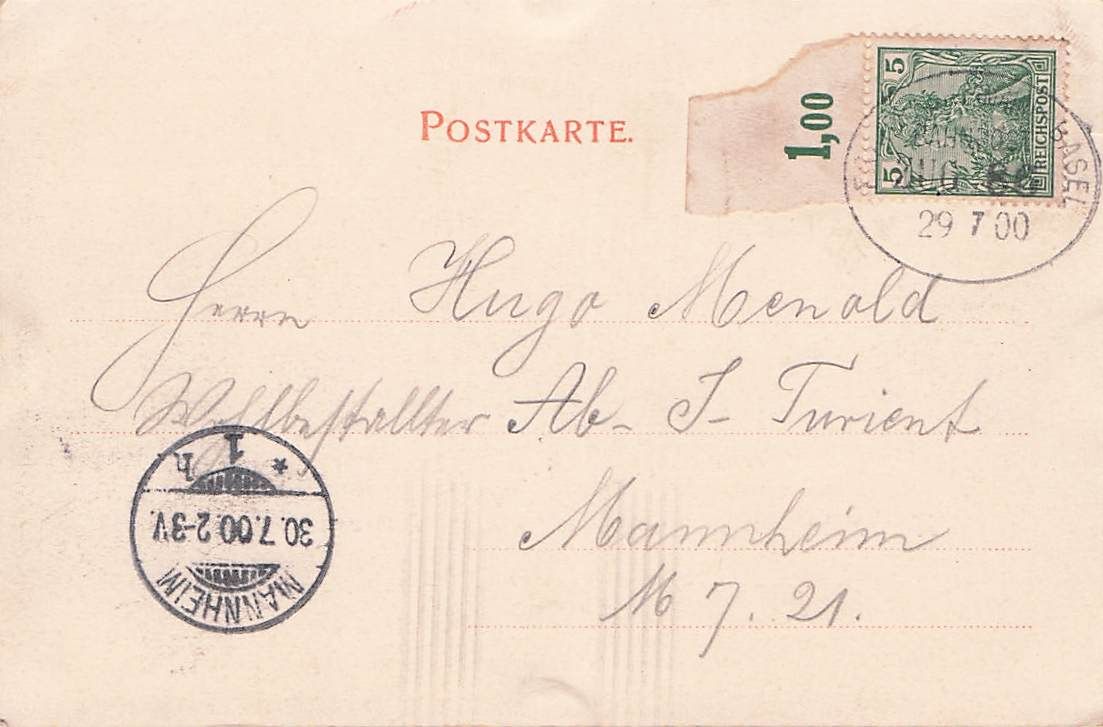 POSTKARTE.
1,00
5 5
REICHSPOST
BASEL
ZUG
29 7 00
Herrn Hugo Menold
Wohlbestallter Ab- I- Turient
Mannheim
M 7. 21.
MANNHEIM
30.7.00.2-3V.
* 1 h